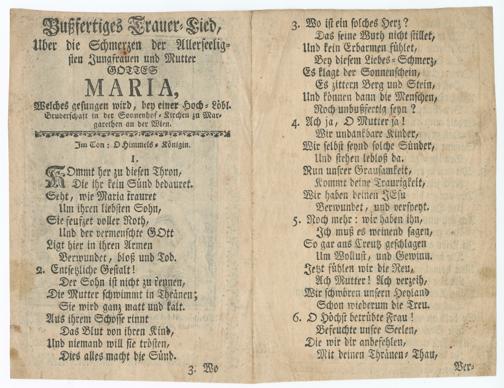 Bußfertiges Trauer-Lied,
Uber die Schmerzen der Allerseelig-
sten Jungfrauen und Mutter
GOTTES
MARIA,
Welches gesungen wird, bey einer Hoch-Löbl.
Bruderschaft in der Sonnenhof-Kirchen zu Mar-
garethen an der Wien.
Im Ton: O Himmels-Königin.
1.
KOmmt her zu diesen Thron,
Die ihr kein Sünd bedauret.
Seht, wie Maria trauret
Um ihren liebsten Sohn,
Sie seufzet voller Noth,
Und der vermenschte GOtt
Ligt hier in ihren Armen
Verwundet, bloß und Tod.
2. Entsetzliche Gestalt!
Der Sohn ist nicht zu kennen,
Die Mutter schwimmt in Thränen;
Sie wird ganz matt und kalt.
Aus ihrem Schosse rinnt
Das Blut von ihren Kind,
Und niemand will sie trösten,
Dies alles macht die Sünd.
3. Wo
3. Wo ist ein solches Herz?
Das seine Wuth nicht stillet,
Und kein Erbarmen fühlet,
Bey diesem Liebes-Schmerz,
Es klagt der Sonnenschein,
Es zittern Berg und Stein,
Und können dann die Menschen,
Noch unbußfertig seyn?
4. Ach ja, O Mutter ja!
Wir undankbare Kinder,
Wir selbst seynd solche Sünder,
Und stehen lebloß da.
Nun unsrer Grausamkeit,
Kommt deine Traurigkeit,
Wir haben deinen JEsu
Verwundet, und verspeyt.
5. Noch mehr: wir haben ihn,
Ich muß es weinend sagen,
So gar ans Creutz geschlagen
Um Wollust, und Gewinn.
Jetzt fühlen wir die Reu,
Ach Mutter! Ach verzeih,
Wir schwören unsern Heyland
Schon wiederum die Treu.
6. O Höchst betrübte Frau!
Befeuchte unsre Seelen,
Die wir dir anbefehlen,
Mit deinen Thränen-Thau,
Ver-